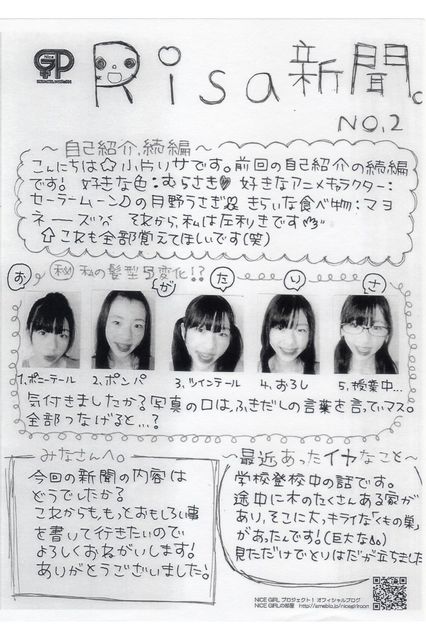 Nice
GP
Risa新聞。
NO,2
〜自己紹介,続編〜
こんにちは☆小片リサです。前回の自己紹介の続編
です! 好きな色:むらさき♥ 好きなアニメキャラクター:
セーラームーン☽の月野うさぎ きらいな食べ物:マヨ
ネーズ それから,私は左利きです
⇧これも全部覚えてほしいです(笑)
㊙ 私の髪型5変化!?
お が た り さ
1,ポニーテール 2,ポンパ 3,ツインテール 4,おろし 5,授業中…
気付きましたかる?写真の口は,ふきだしの言葉を言っていマス。
全部つなげると…?
みなさんへ。
今回の新聞の内容は
どうでしたかる
これからももっとおもしろい事
を書いて行きたいので
よろしくおねがいします!
ありがとうございました!
〜最近あったイヤなこと〜
学校登校中の話です。
途中に木のたくさんある家が
あり,そこに大っキライな「くもの巣」
があったんです!(巨大な)
見ただけでとりはだが立ちました
NICE GIRL プロジェクト! オフィシャルブログ
NICE GIRLの部屋 http://ameblo.jp/nicegirlroom